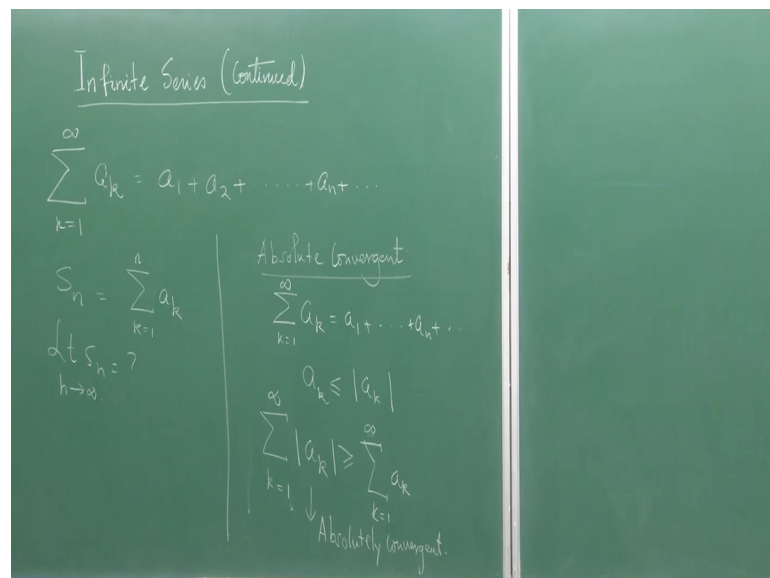 Infinite Series (Continued)
∞
∑ a_k = a_1 + a_2 + ······ + a_n + ···
k=1
S_n = ∑_{k=1}^{n} a_k
Lt_{n→∞} S_n = ?
Absolute Convergent
∑_{k=1}^{∞} a_k = a_1 + ···· + a_n + ···
a_k ≤ |a_k|
∑_{k=1}^{∞} |a_k| ≥ ∑_{k=1}^{∞} a_k
↓
Absolutely convergent.